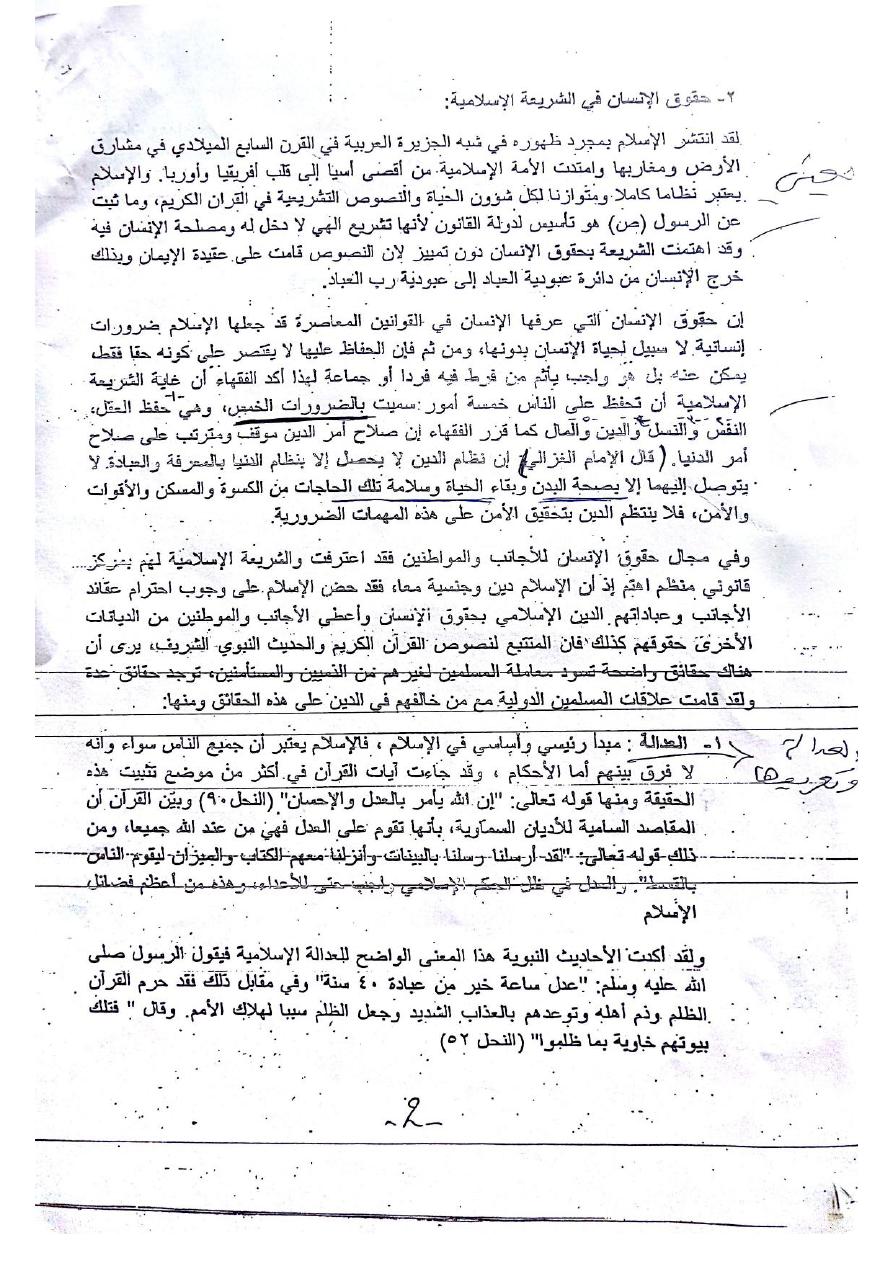 ٢- حقوق الإنسان في الشريعة الإسلامية:
لقد انتشر الإسلام بمجرد ظهوره في شبه الجزيرة العربية في القرن السابع الميلادي في مشارق
الأرض ومغاربها وامتدت الأمة الإسلامية من أقصى أسيا إلى قلب أفريقيا وأوربا. والإسلام
يعتبر نظاما كاملا ومتوازنا لكل شؤون الحياة والنصوص التشريعية في القران الكريم، وما ثبت
عن الرسول (ص) هو تأسيس لدولة القانون لأنها تشريع الهي لا دخل له ومصلحة الإنسان فيه
وقد اهتمت الشريعة بحقوق الإنسان دون تمييز لان النصوص قامت على عقيدة الإيمان وبذلك
خرج الإنسان من دائرة عبودية العباد إلى عبودية رب العباد.
إن حقوق الإنسان التي عرفها الإنسان في القوانين المعاصرة قد جعلها الإسلام ضرورات
إنسانية لا سبيل لحياة الإنسان بدونها، ومن ثم فإن الحفاظ عليها لا يقتصر على كونه حقا فقط،
يمكن عنه بل هو واجب يأثم من فرط فيه فردا أو جماعة لهذا أكد الفقهاء أن غاية الشريعة
الإسلامية أن تحفظ على الناس خمسة أمور سميت بالضرورات الخمس، وهي حفظ العقل،
النفس والنسل والدين والمال كما قرر الفقهاء إن صلاح أمر الدين موقف ومترتب على صلاح
أمر الدنيا. (قال الإمام الغزالي) إن نظام الدين لا يحصل إلا بنظام الدنيا بالمعرفة والعبادة. لا
يتوصل إليهما إلا بصحة البدن وبقاء الحياة وسلامة تلك الحاجات من الكسوة والمسكن والأقوات
والأمن، فلا ينتظم الدين بتحقيق الأمن على هذه المهمات الضرورية.
وفي مجال حقوق الإنسان للأجانب والمواطنين فقد اعترفت والشريعة الإسلامية لهم بمركز
قانوني منظم اهتم إذ أن الإسلام دين وجنسية معا، فقد حض الإسلام على وجوب احترام عقائد
الأجانب وعباداتهم الدين الإسلامي بحقوق الإنسان وأعطي الأجانب والموطنين من الديانات
الأخرى حقوقهم كذلك فان المتتبع لنصوص القرآن الكريم والحديث النبوي الشريف، يرى أن
هناك حقائق واضحة تسود معاملة المسلمين لغيرهم من الذميين والمستأمنين، توجد حقائق عدة
ولقد قامت علاقات المسلمين الدولية مع من خالفهم في الدين على هذه الحقائق ومنها:
العدالة
وتعريفها
١- العدالة : مبدأ رئيسي وأساسي في الإسلام ، فالإسلام يعتبر أن جميع الناس سواء وانه
لا فرق بينهم أما الأحكام ، وقد جاءت آيات القرآن في أكثر من موضع تثبيت هذه
الحقيقة ومنها قوله تعالى: "إن الله يأمر بالعدل والإحسان" (النحل ٩٠) وبيّن القرآن أن
المقاصد السامية للأديان السماوية، بأنها تقوم على العدل فهي من عند الله جميعا، ومن
ذلك قوله تعالى: "لقد أرسلنا رسلنا بالبينات وأنزلنا معهم الكتاب والميزان ليقوم الناس
بالقسط". والعدل في ظل الحكم الإسلامي واجب حتى للأعداء، وهذه من أعظم فضائل
الإسلام
ولقد أكدت الأحاديث النبوية هذا المعنى الواضح للعدالة الإسلامية فيقول الرسول صلى
الله عليه وسلم: "عدل ساعة خير من عبادة ٤٠ سنة" وفي مقابل ذلك فقد حرم القرآن
الظلم وذم أهله وتوعدهم بالعذاب الشديد وجعل الظلم سببا لهلاك الأمم. وقال " فتلك
بيوتهم خاوية بما ظلموا" (النحل ٥٢)
-2-